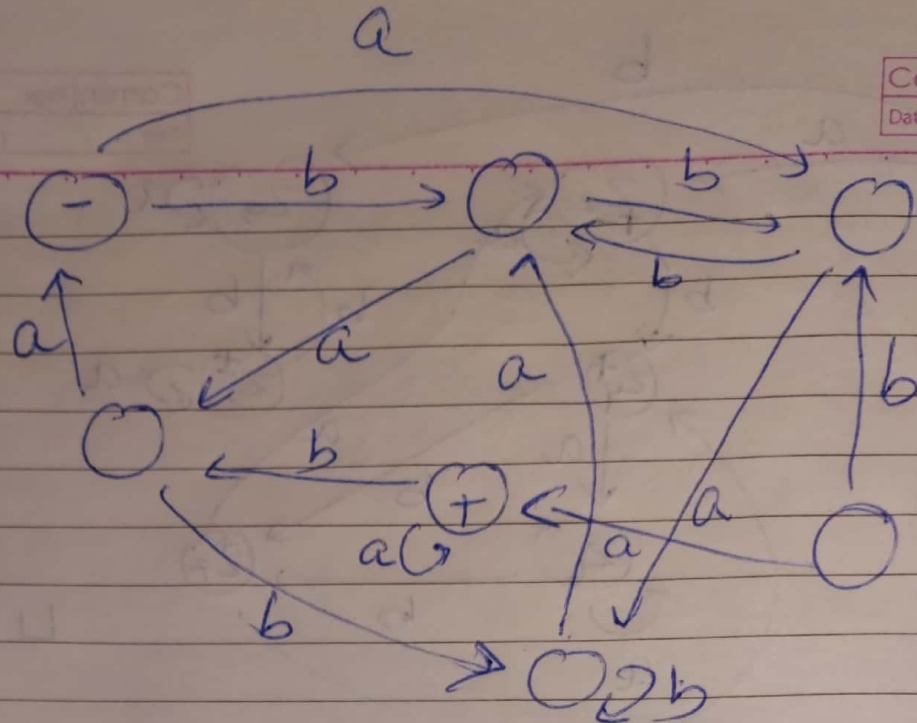 a
Co
Dat
- b b
b
a a a b
b
+
a a a
b
b